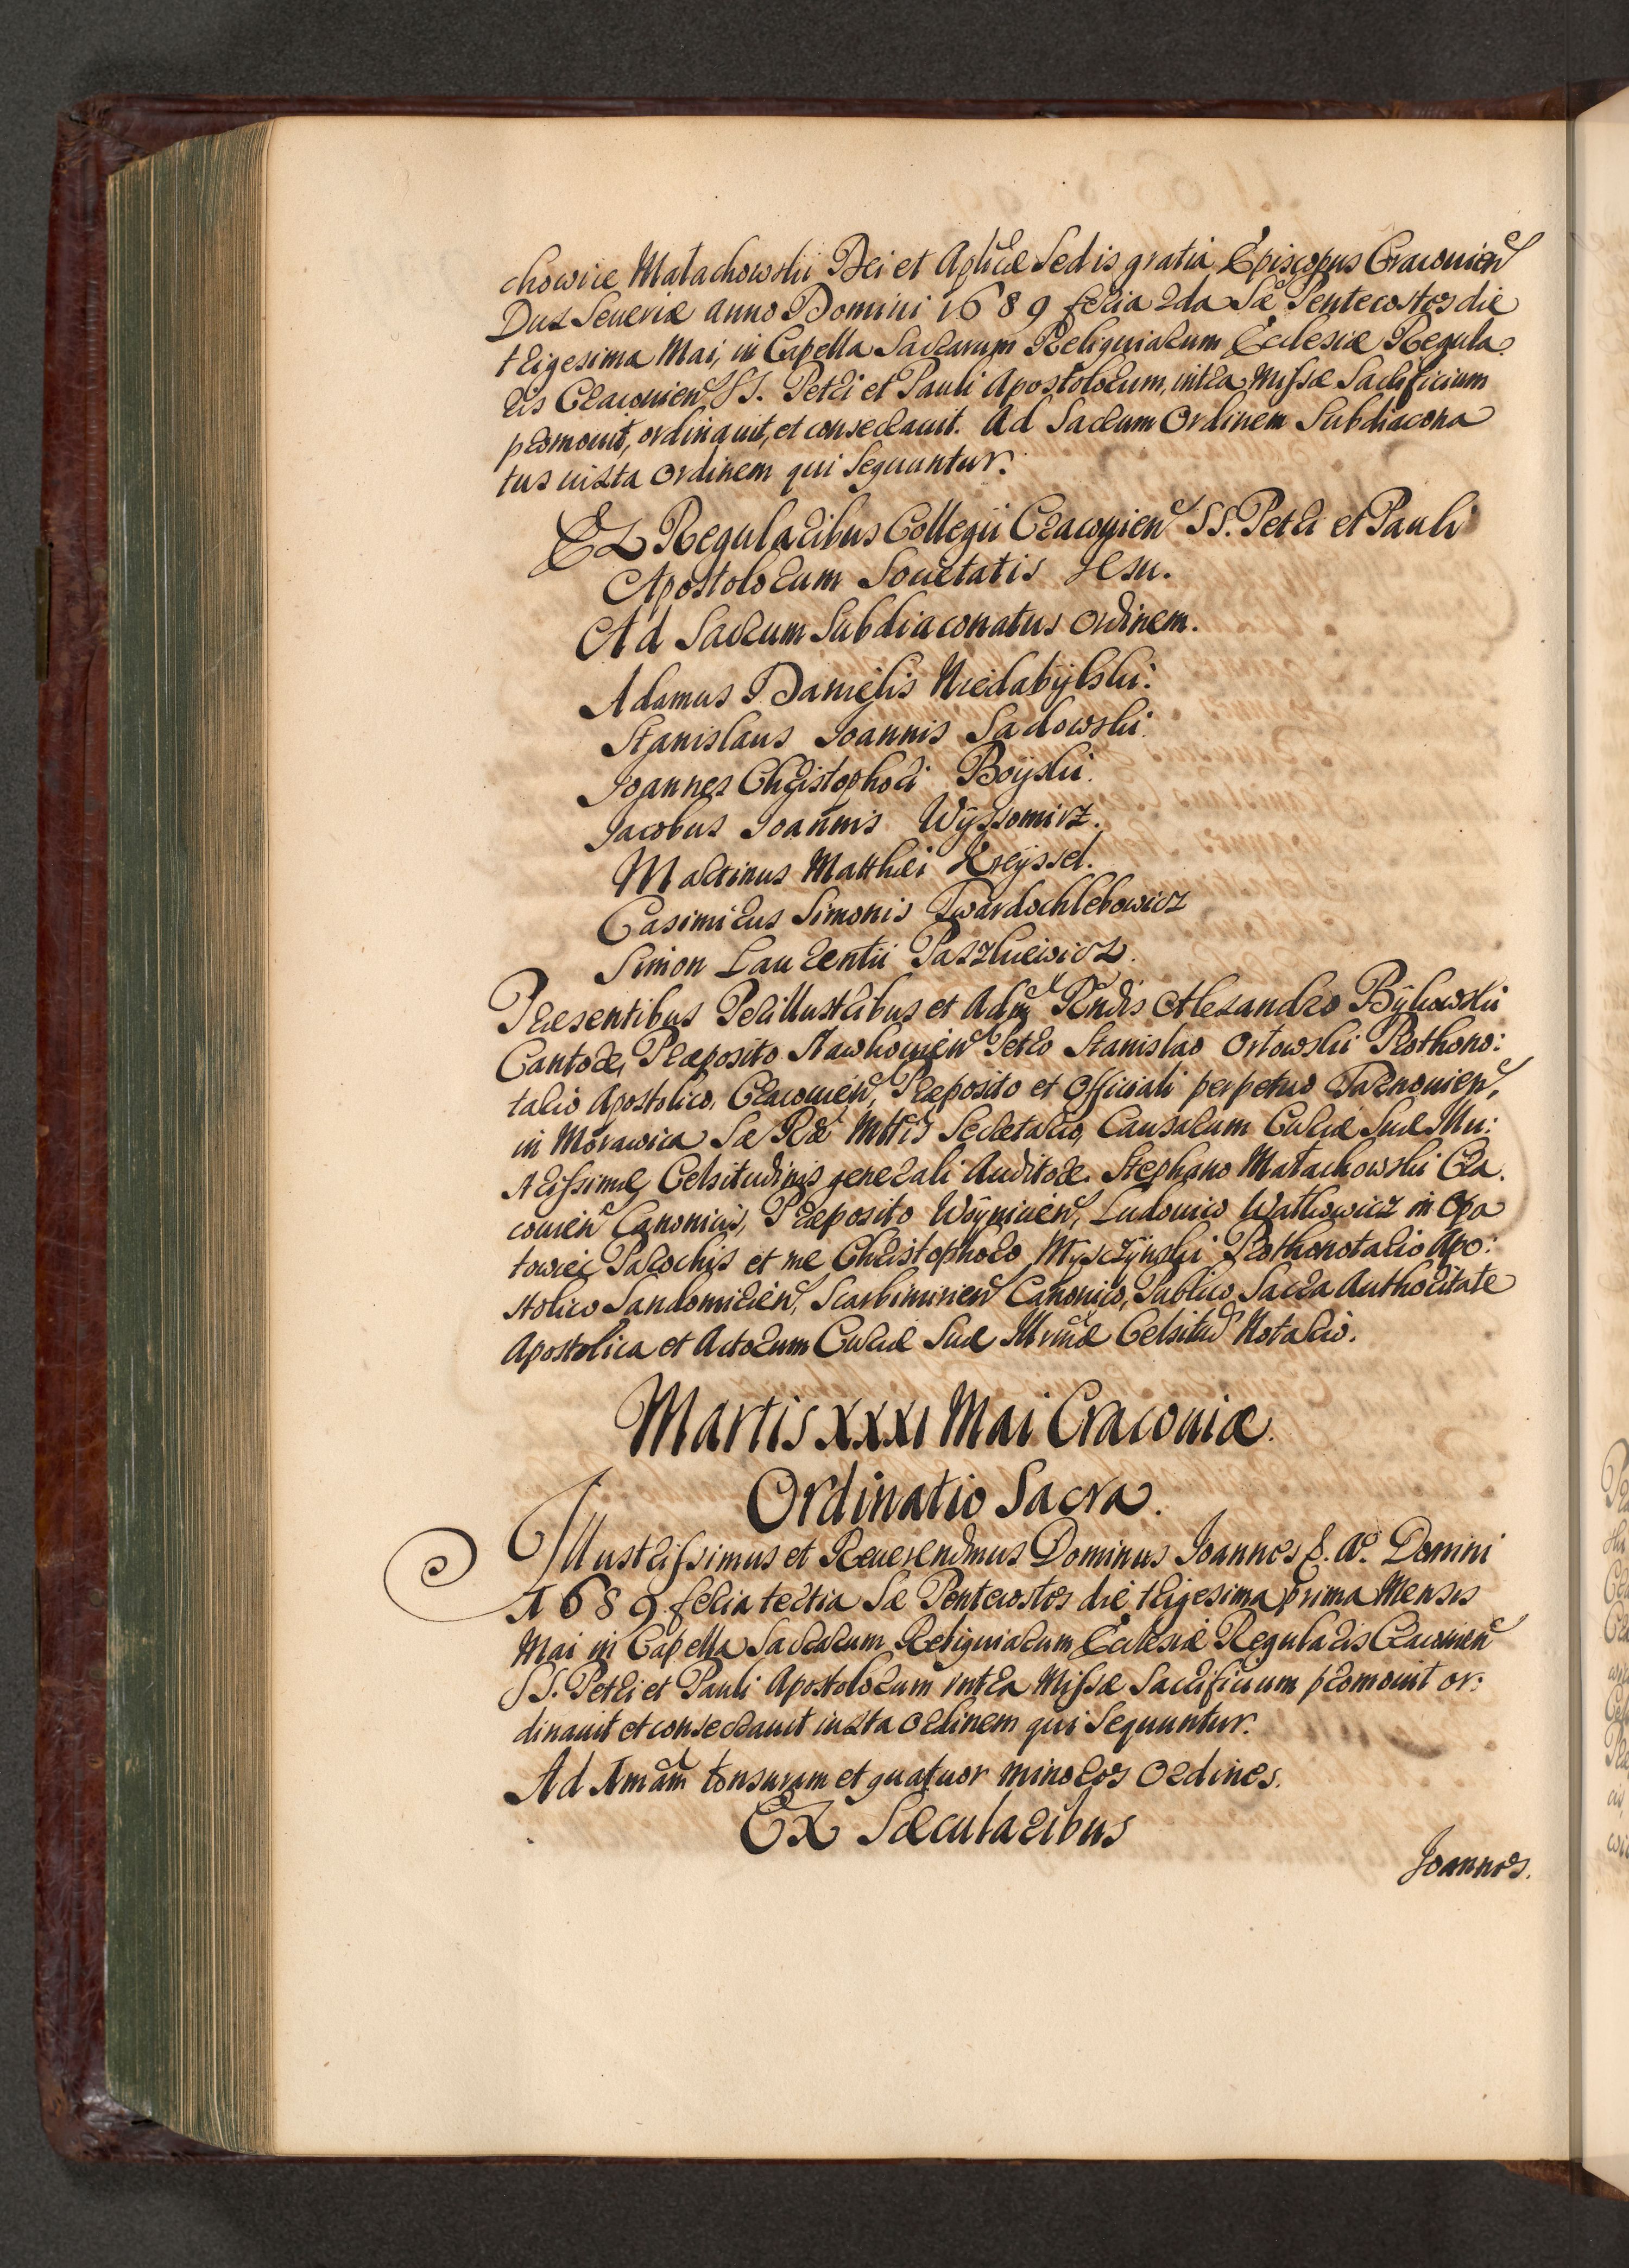 chowice Małachowski Dei et Aplicæ Sedis gratia Episcopus Cracouien
Dux Seueriæ anno Domini 1689 feria 2da Sæ Pentecostes die
trigesima Mai, in Capella Sacrarum Reliquiarum Ecclesiæ Regula
ris Cracouien SS. Petri et Pauli Apostolorum, intra Missæ Sacrificium
promouit, ordinauit, et consecrauit. Ad Sacrum Ordinem Subdiacona
tus iuxta ordinem qui sequuntur.
Ex Regularibus Collegii Cracouien SS. Petri et Pauli
Apostolorum Societatis Jesu.
Ad Sacrum Subdiaconatus ordinem.
Adamus Danielis Niedabÿlski.
Stanislaus Joannis Sadowski.
Joannes Christophori Boÿski.
Jacobus Joannis Wÿssomirz.
Martinus Matthæi Kreÿssel.
Casimirus Simonis Twardochlebowicz
Simon Laurentii Paszkiewicz.
Præsentibus Perillustribus et Adm Rndis Alexandro Bÿkowski
Cantore, Præposito Sławkouien Petro Stanislao Orłowski Prothono:
tario Apostolico, Cracouien, Præposito et Officiali perpetuo Tarnouien,
in Morawica Sæ Ræ Mttis Secretario, Causarum Curiæ Suæ Illu:
strissimæ Celsitudinis generali Auditore. Stephano Małachowski Cra
couien Canonicis, Præposito Woÿnicien, Ludouico Wałkowicz in Opa
towiec Parochis et me Christophoro Mÿsczÿnski Prothonotario Apo:
stolico Sandomirien, Scarbimirien Canonico, Publico Sacra Authoritate
Apostolica et Actorum Curiæ Suæ Illrimæ Celsitud Notario.
Martis XXXI Mai Cracouiæ.
Ordinatio Sacra.
Illustrissimus et Reuerendmus Dominus Joannes &. Ao. Domini
1689 feria tertia Sæ Pentecostes die trigesima prima Mensis
Mai in Capella Sacrarum Reliquiarum Ecclesiæ Regularis Cracouien
SS. Petri et Pauli Apostolorum intra Missæ Sacrificium promouit or:
dinauit et consecrauit iuxta ordinem qui sequuntur.
Ad 1mam tonsuram et quatuor minores ordines.
Ex Sæcularibus
Joannes.